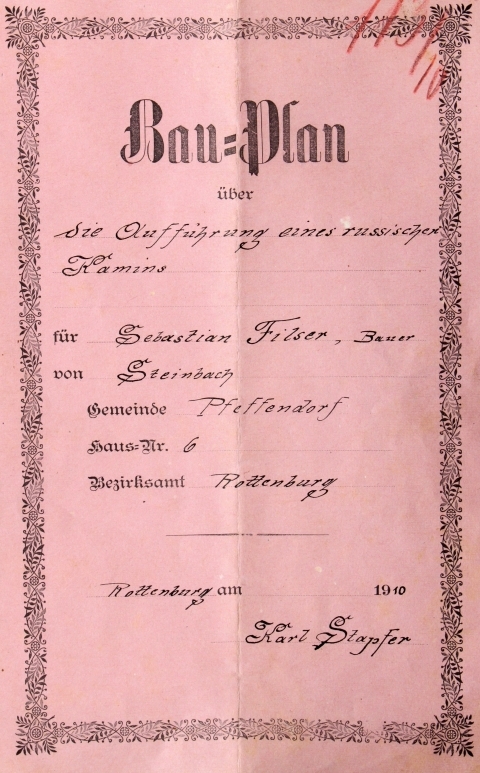 Bau=Plan
über
die Aufführung eines russischen
Kamins
für Sebastian Filser, Bauer
von Steinbach
Gemeinde Pfeffendorf
Haus=Nr. 6
Bezirksamt Rottenburg
Rottenburg am 1910
Karl Stapfer